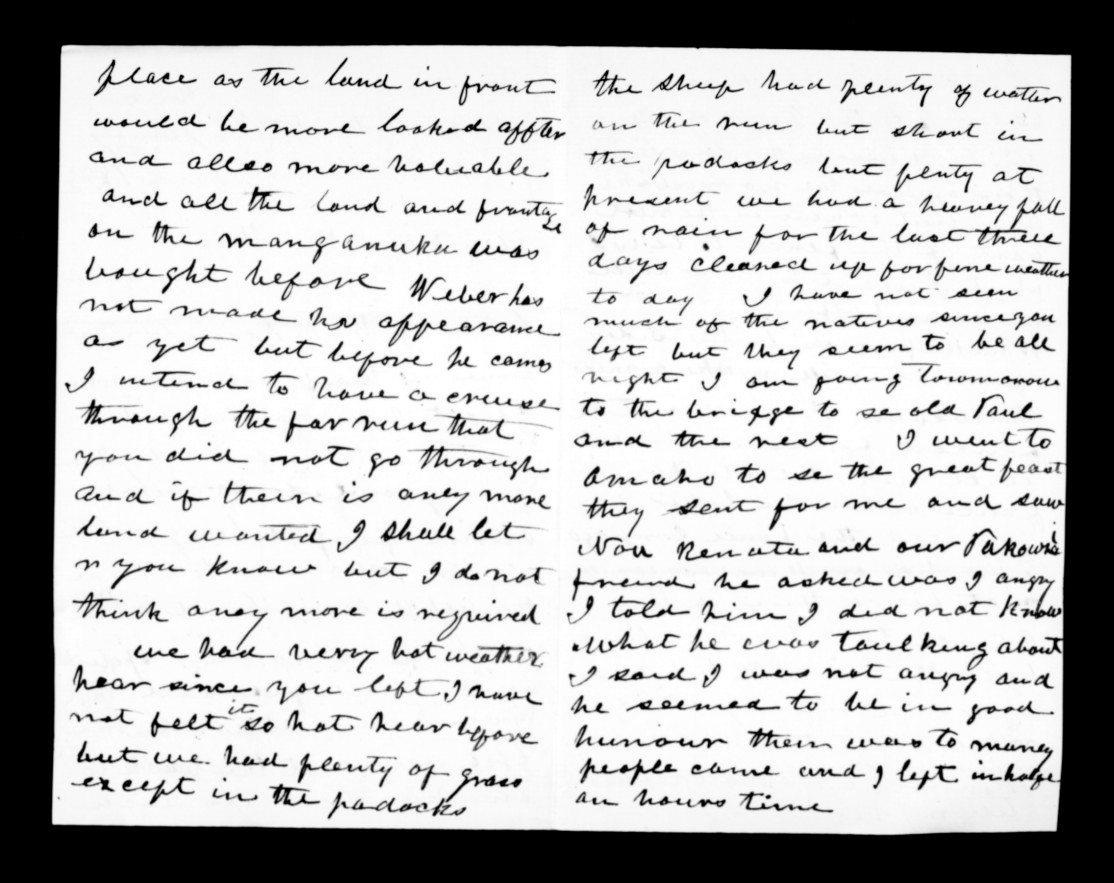 place as the land in front
would be more looked affter
and allso more valuable
and all the land and frontage
on the manganuka was
bought before Weber has
not made his appearance
as yet but before he comes
I intend to have a cruise
through the far run that
you did not go through
and if their is aney more
land wanted I shall let
you know but I do not
think aney more is required
we had verry hot weather
hear since you left I have
not felt it so hot hear before
but we had plenty of grass
except in the padocks
the sheep had plenty of watter
on the run but short in
the padocks but plenty at
present we had a heavey fall
of rain for the last three
days cleared up for fine weather
to day I have not seen
much of the natives since you
left but they seem to be all
right I am going towmorow
to the bridge to se old Paul
and the rest I went to
Omaho to se the great feast
they sent for me and saw
Noa Renata and our Pakowai
freind he asked was I angry
I told him I did not know
what he was taulking about
I said I was not angry and
he seemed to be in good
humour their was to maney
people came and I left in halfe
an hours time